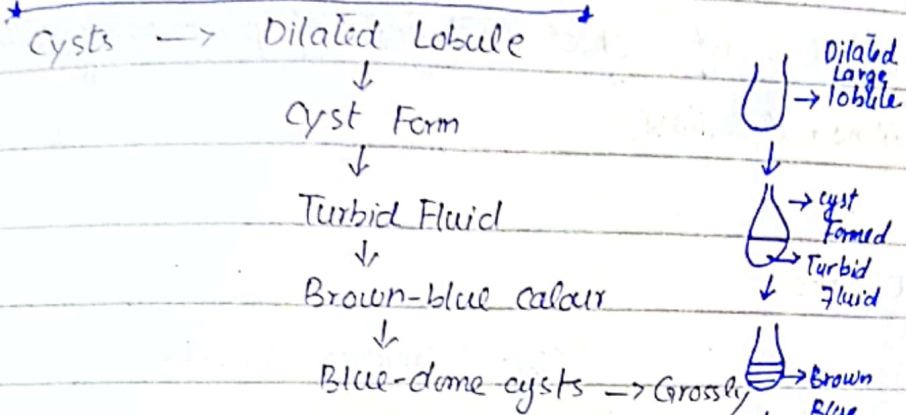 Cysts → Dilated Lobule
↓
Cyst Form
↓
Turbid Fluid
↓
Brown-blue calour
↓
Blue-dome cysts → Grossly
Dilated
Large
→ lobule
↓
→ cyst
Formed
→ Turbid
Fluid
↓
→ Brown
Blue